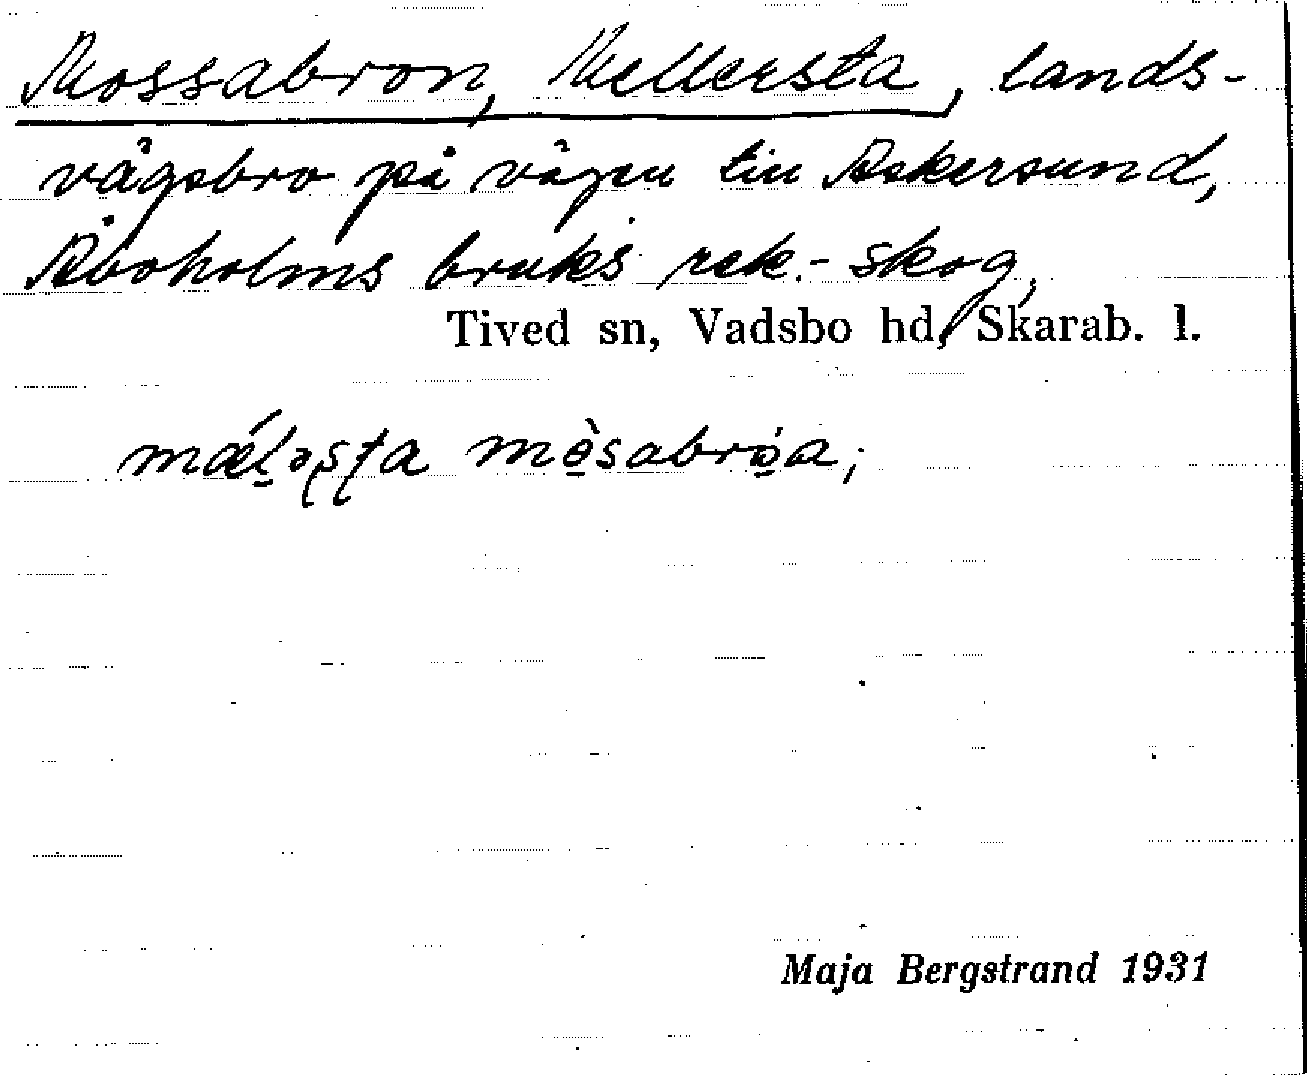 Mossabron, Mellersta, lands-
vägsbro på vägen till Askersund,
Åboholms bruks rek.-skog,
Tived sn, Vadsbo hd, Skarab. l.
mǽl̠əʂʈa mò̠sabrὼ̠a;
Maja Bergstrand 1931